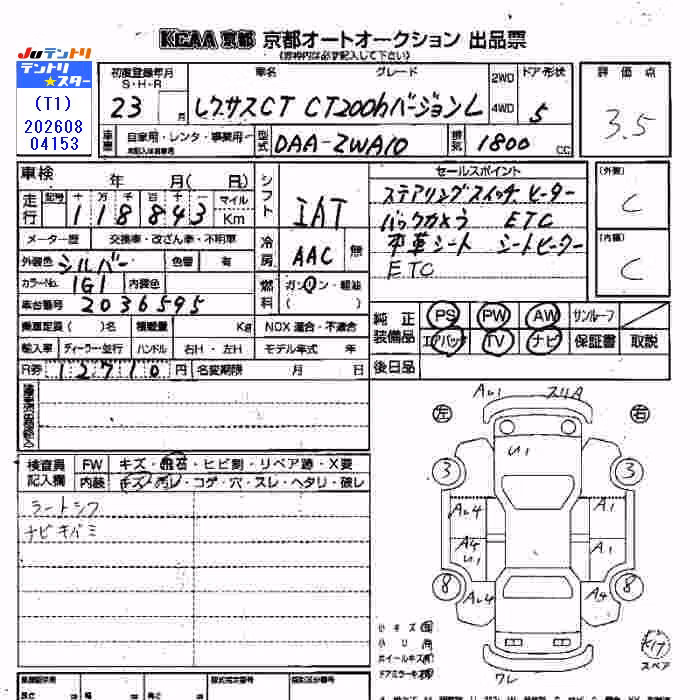 KCAA 京都 京都オートオークション 出品票
(太枠内は必ず記入して下さい)
JUテントリ
テントリ★スター
(T1)
202608
04153
初度登録年月 S・H・R 23 月
車名 レクサスCT
グレード CT200hバージョンL
2WD 4WD
ドア形状 5
車歴 自家用・レンタ・事業用
型式 DAA-ZWA10
排気 1800 CC
評価点 3.5
車検 年 月(日)
走行 記号 十 万 千 百 十 一 マイル Km
118843
メーター歴 交換車・改ざん車・不明車
外装色 シルバー 色替 有
カラーNo. 1G1 内装色
車台番号 2036595
乗車定員( )名 積載量 Kg
輸入車 ディーラー・並行 ハンドル 右H・左H
R券 12710 円 名変期限 月 日
シフト IAT
冷房 AAC 無
燃料 ガソリン・軽油 ( )
NOX 適合・不適合
モデル年式 年
セールスポイント
ステアリングスイッチ ヒーター
バックカメラ ETC
本革シート シートヒーター
ETC
(外装) C
(内装) C
純正装備品 PS PW AW サンルーフ
エアバッグ TV ナビ 保証書 取説
後日品
検査員記入欄 FW キズ・飛石・ヒビ割・リペア跡・X要
内装 キズ・汚レ・コゲ・穴・スレ・ヘタリ・破レ
ナビキバミ
左 右
3 3
A1
A1
8 8
小キズ 有
小凹 有
ホイールキズ 有
ドアミラーキズ 有
ワレ
スペア